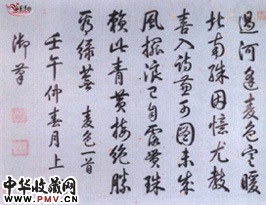 過河逢麥色寒暖
北南殊因憶尤教
喜入詩兼可圖未成
風搖浪已自露貫珠
賴此青黃接絶勝
秀緑蕪 麥色一首
壬午仲春月上
御筆
中华收藏网
www.PMV.cn